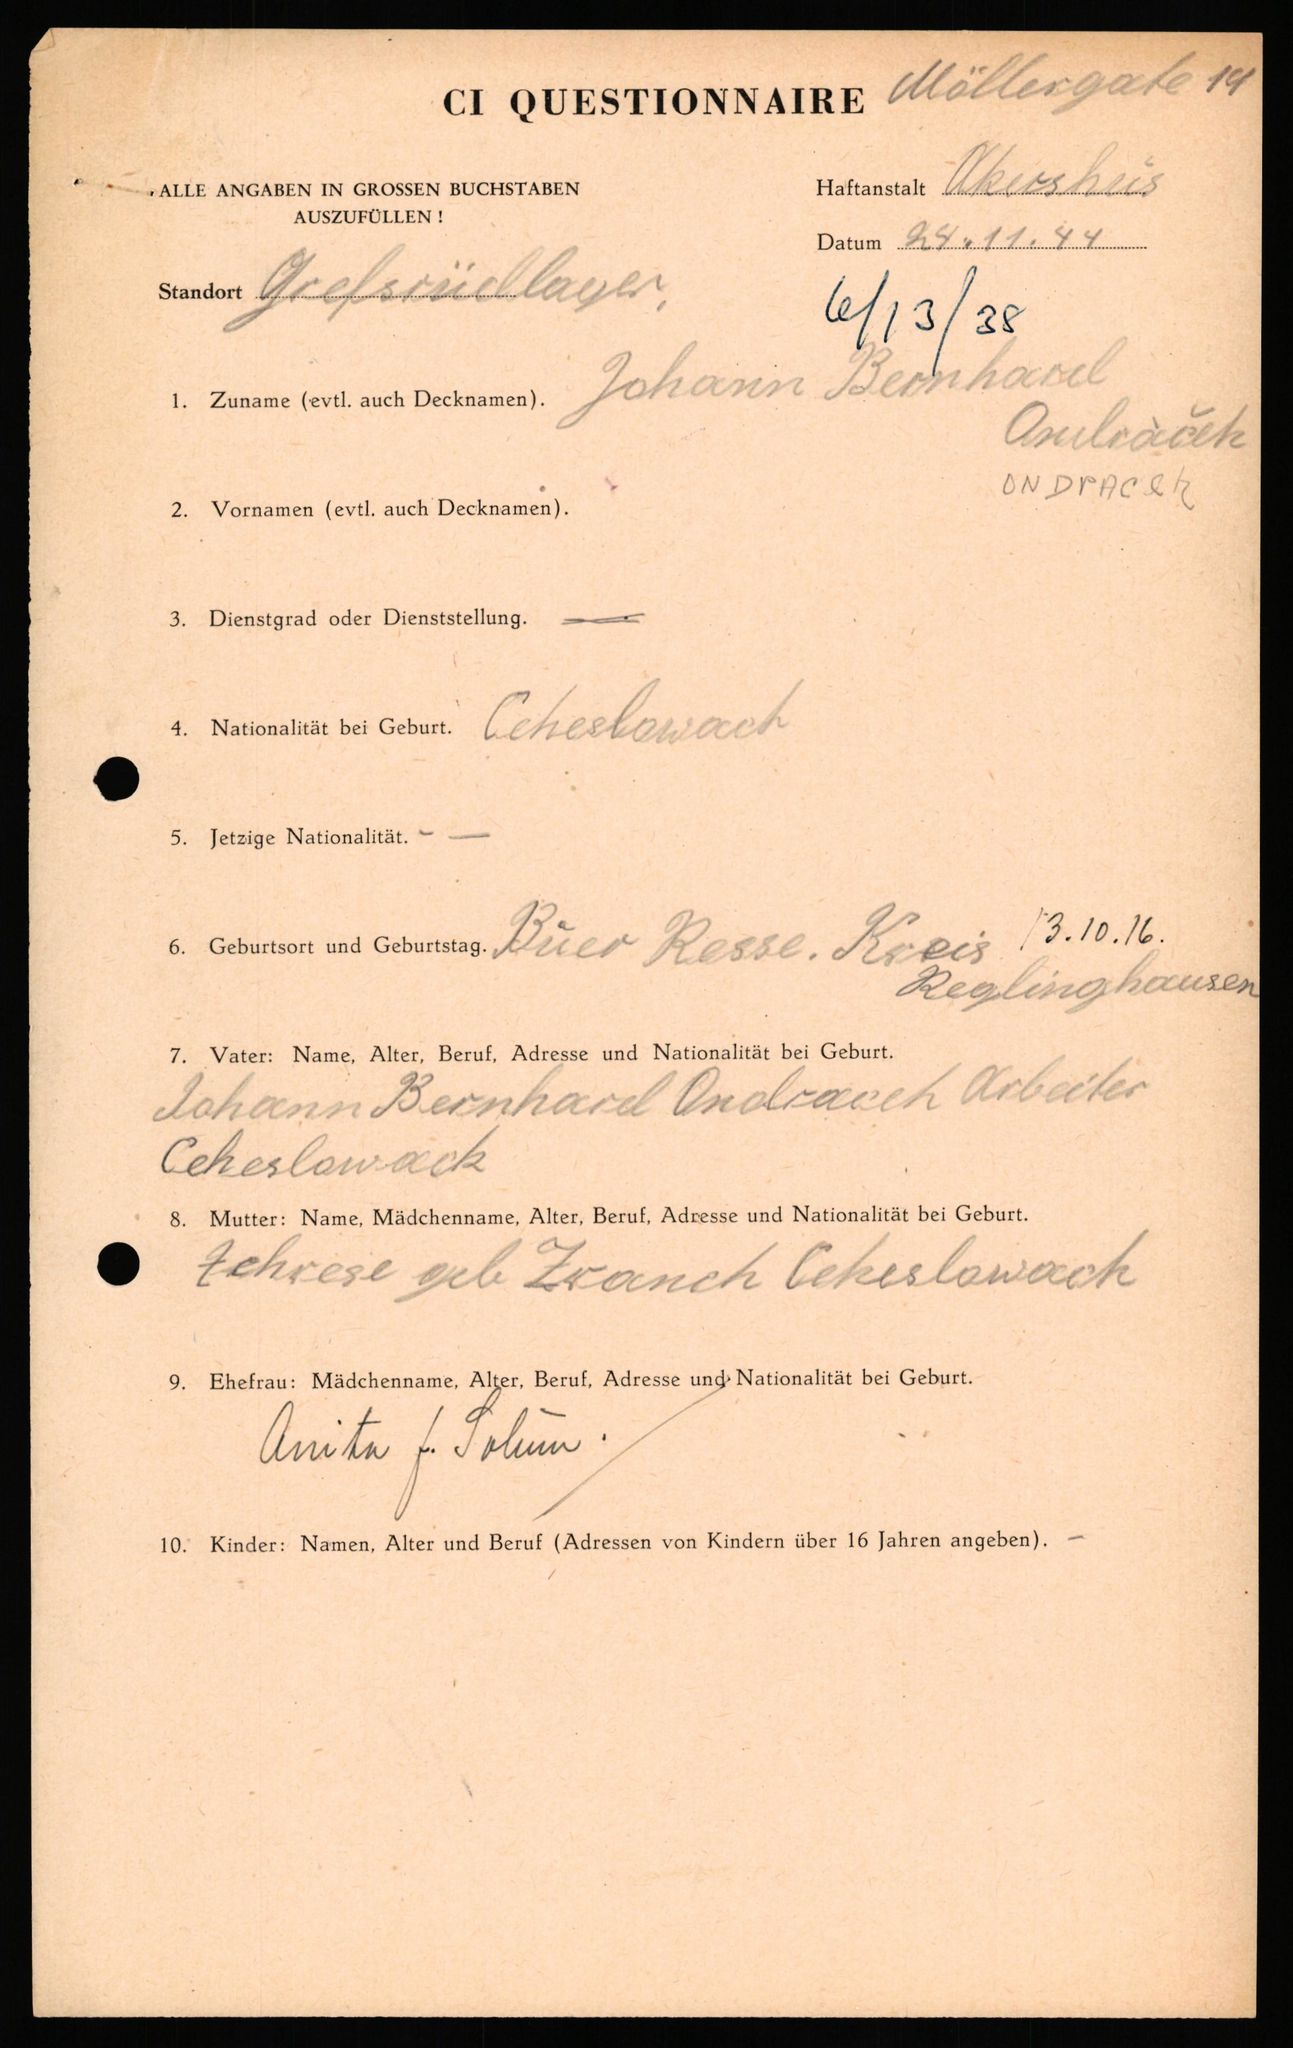 CI QUESTIONNAIRE Möllergate 19
ALLE ANGABEN IN GROSSEN BUCHSTABEN
AUSZUFÜLLEN!
Haftanstalt Akershüs
Datum 24.11.44
Standort
6/13/38
1. Zuname (evtl. auch Decknamen). Johann Bernhard
Ondráček
ONDRACEK
2. Vornamen (evtl. auch Decknamen).
3. Dienstgrad oder Dienststellung. —
4. Nationalität bei Geburt. Cekeslowack
5. Jetzige Nationalität. - —
6. Geburtsort und Geburtstag. Büer Resse. Kreis 13.10.16.
Reglinghausen
7. Vater: Name, Alter, Beruf, Adresse und Nationalität bei Geburt.
Johann Bernhard Ondracek Arbeiter
Cekeslowack
8. Mutter: Name, Mädchenname, Alter, Beruf, Adresse und Nationalität bei Geburt.
geb Cekeslowack
9. Ehefrau: Mädchenname, Alter, Beruf, Adresse und Nationalität bei Geburt.
Anita f. Solum.
10. Kinder: Namen, Alter und Beruf (Adressen von Kindern über 16 Jahren angeben). -